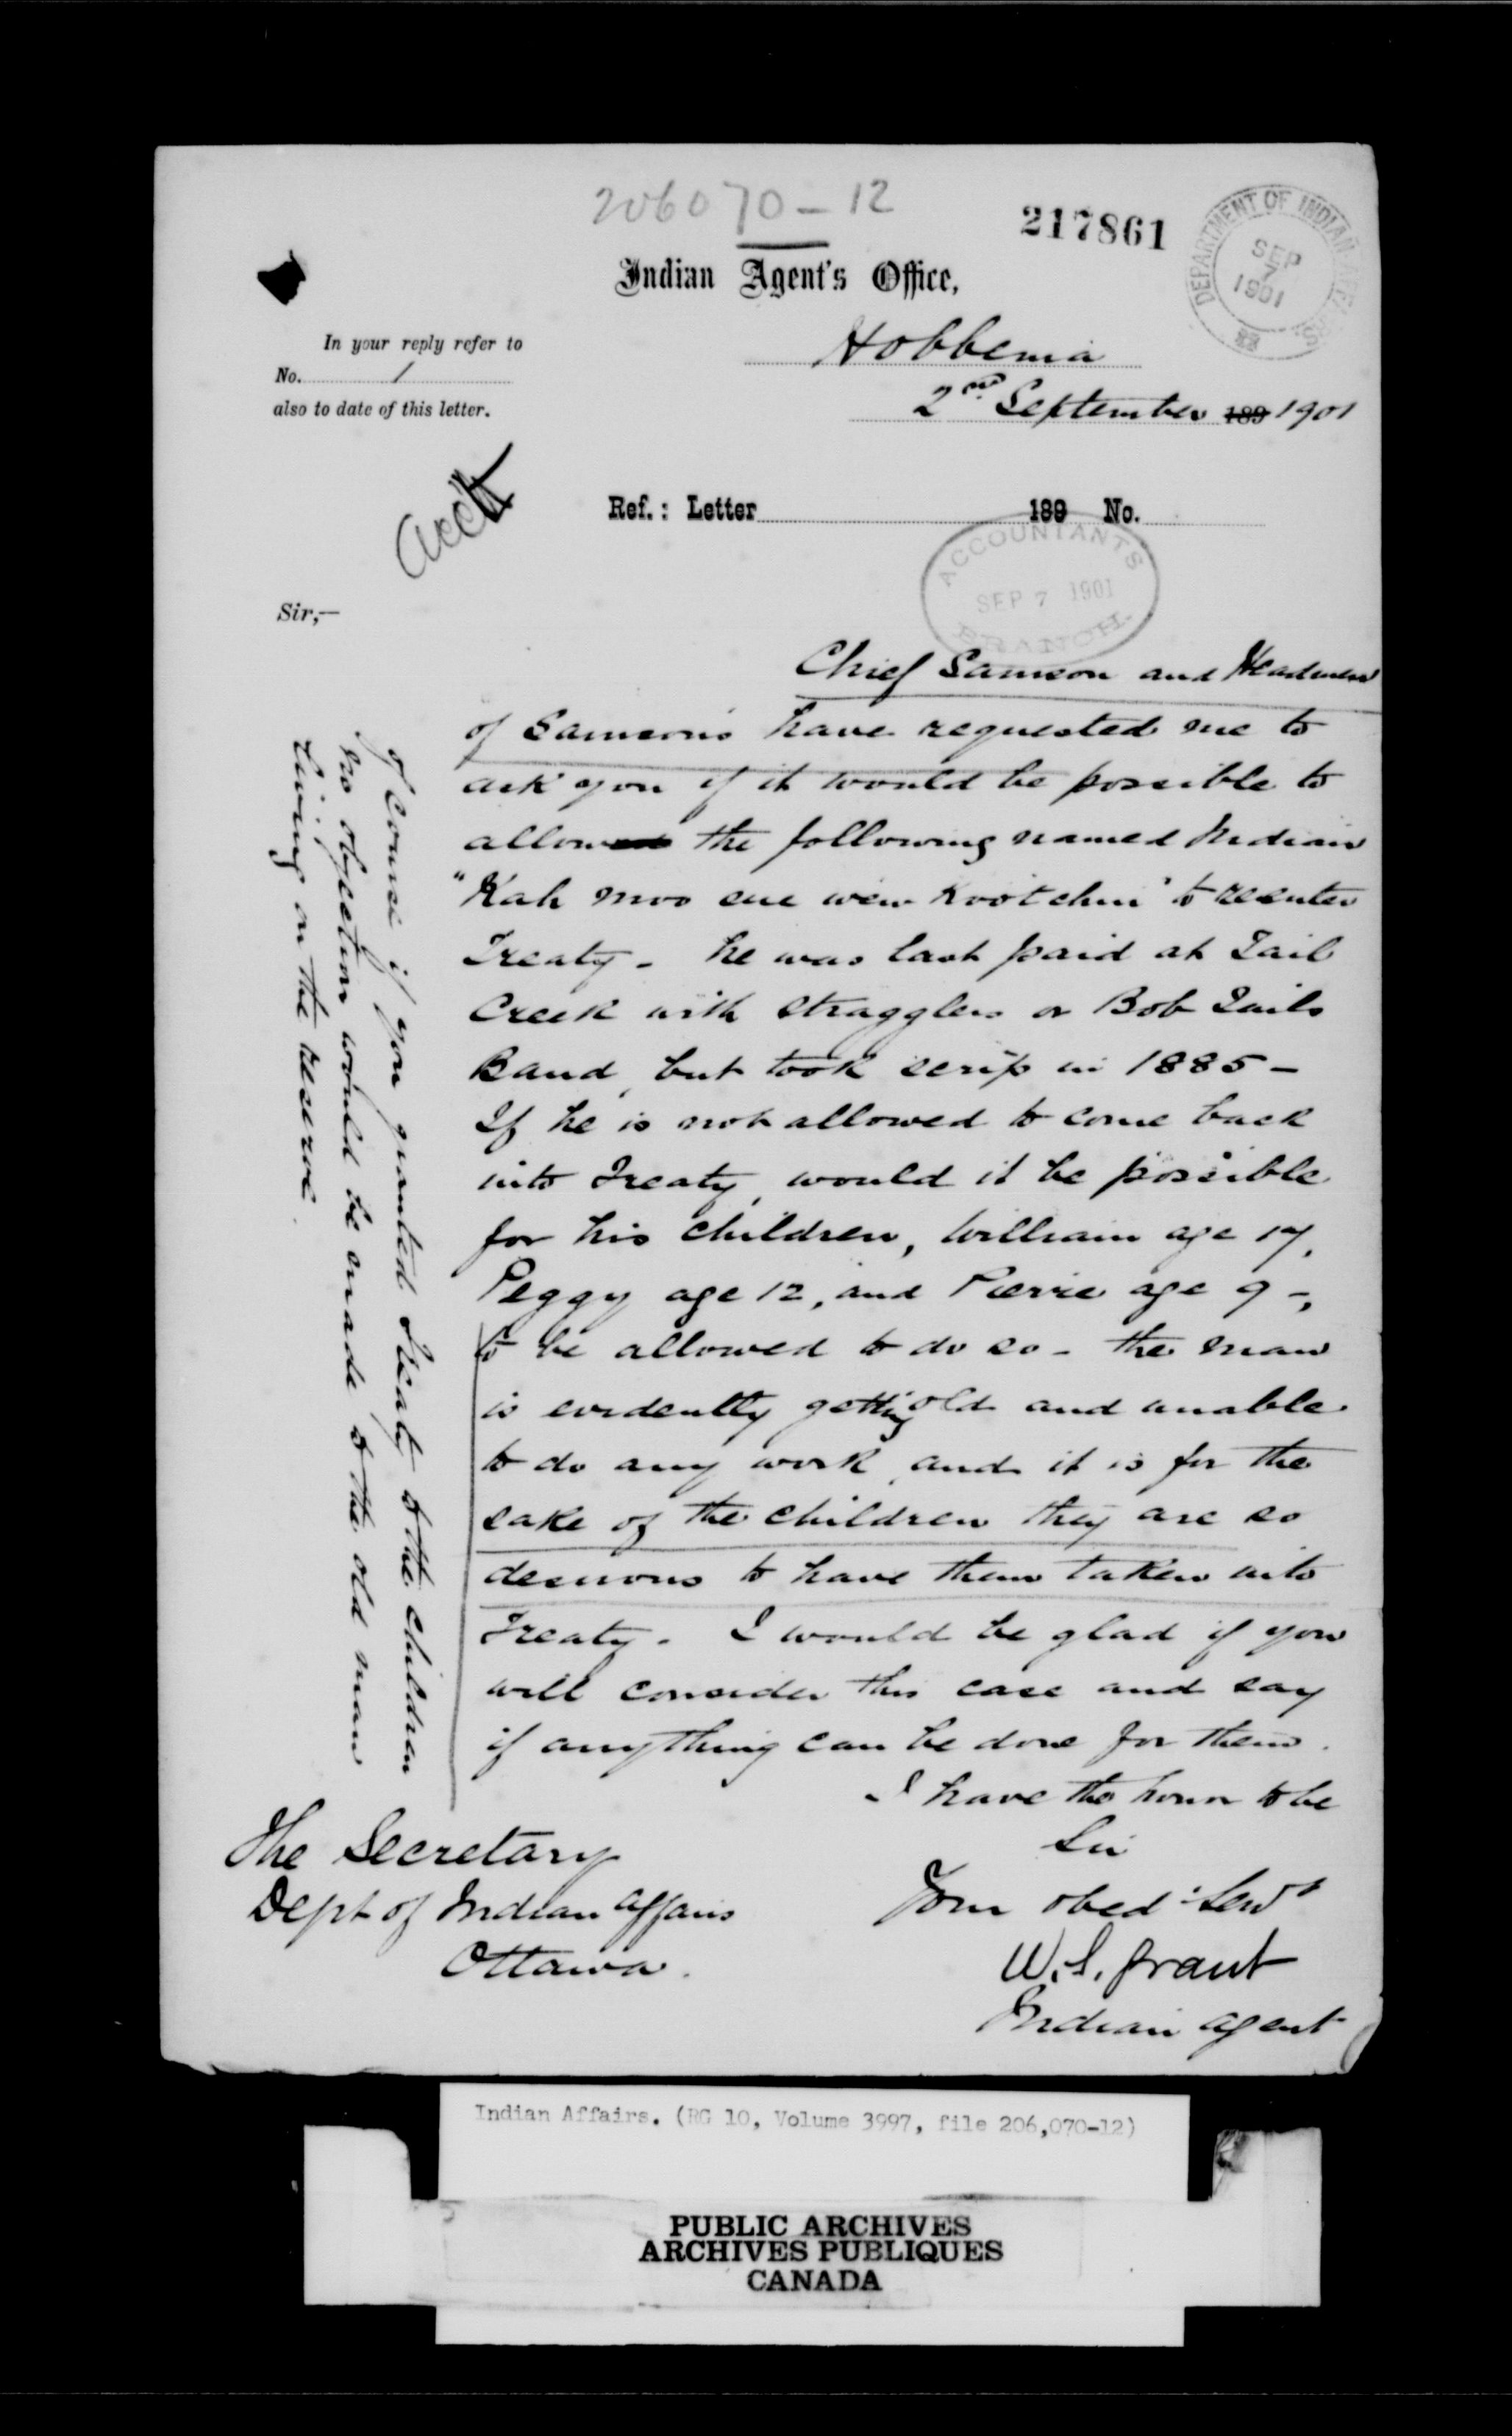 206070-12
217861
DEPARTMENT OF INDIAN AFFAIRS.
SEP
7
1901
Indian Agent's Office,
In your reply refer to
No. 1
also to date of this letter.
Hobbema
2nd September 189 1901
Acct
Ref.: Letter 189 No.
ACCOUNTANTS
SEP 7 1901
BRANCH
Sir,—
Chief Samson and Headmen
of Samson's have requested me to
ask you if it would be possible to
allow the following named Indian
"Kah moo ene wew Kootchin" to reenter
Treaty - he was last paid at Tail
Creek with stragglers or Bob Tails
Band, but took scrip in 1885 -
If he is not allowed to come back
into Treaty, would it be possible
for his children, William age 17,
Peggy age 12, and Pierre age 9 -,
to be allowed to do so - the man
is evidently getting old and unable
to do any work, and it is for the
sake of the children they are so
desirous to have them taken into
Treaty. I would be glad if you
will consider this case and say
if anything can be done for them.
I have the honor to be
Sir
Your obed. Servt
W.S. Grant
Indian agent
The Secretary
Dept of Indian Affairs
Ottawa.
Of course if you granted Treaty to the children
no objection would be made to the old man
living on the reserve.
Indian Affairs. (RG 10, Volume 3997, file 206,070-12)
PUBLIC ARCHIVES
ARCHIVES PUBLIQUES
CANADA